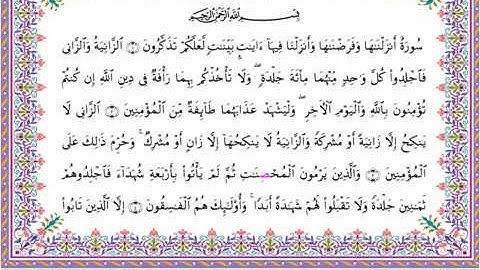 بِسْمِ اللَّهِ الرَّحْمَٰنِ الرَّحِيمِ
سُورَةٌ أَنزَلْنَٰهَا وَفَرَضْنَٰهَا وَأَنزَلْنَا فِيهَآ ءَايَٰتٍۭ بَيِّنَٰتٍ لَّعَلَّكُمْ تَذَكَّرُونَ ۝ الزَّانِيَةُ وَالزَّانِى
فَاجْلِدُوا۟ كُلَّ وَٰحِدٍ مِّنْهُمَا مِا۟ئَةَ جَلْدَةٍ ۖ وَلَا تَأْخُذْكُم بِهِمَا رَأْفَةٌ فِى دِينِ اللَّهِ إِن كُنتُمْ
تُؤْمِنُونَ بِاللَّهِ وَالْيَوْمِ الْءَاخِرِ ۖ وَلْيَشْهَدْ عَذَابَهُمَا طَآئِفَةٌ مِّنَ الْمُؤْمِنِينَ ۝ الزَّانِى لَا
يَنكِحُ إِلَّا زَانِيَةً أَوْ مُشْرِكَةً وَالزَّانِيَةُ لَا يَنكِحُهَآ إِلَّا زَانٍ أَوْ مُشْرِكٌ ۚ وَحُرِّمَ ذَٰلِكَ عَلَى
الْمُؤْمِنِينَ ۝ وَالَّذِينَ يَرْمُونَ الْمُحْصَنَٰتِ ثُمَّ لَمْ يَأْتُوا۟ بِأَرْبَعَةِ شُهَدَآءَ فَاجْلِدُوهُمْ
ثَمَٰنِينَ جَلْدَةً وَلَا تَقْبَلُوا۟ لَهُمْ شَهَٰدَةً أَبَدًا ۚ وَأُو۟لَٰٓئِكَ هُمُ الْفَٰسِقُونَ ۝ إِلَّا الَّذِينَ تَابُوا۟